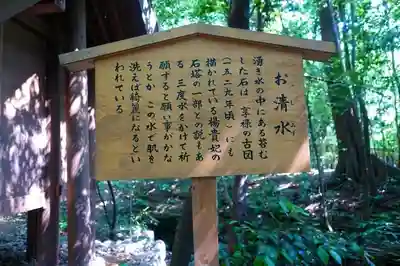 お清水
湧き水の中にある苔む
した石は 享禄の古図
(一五二九年頃)にも
描かれている楊貴妃の
石塔の一部との説もあ
る 三度水をかけて祈
願すると願い事がかな
うとか この水で肌を
洗えば綺麗になるとい
われている